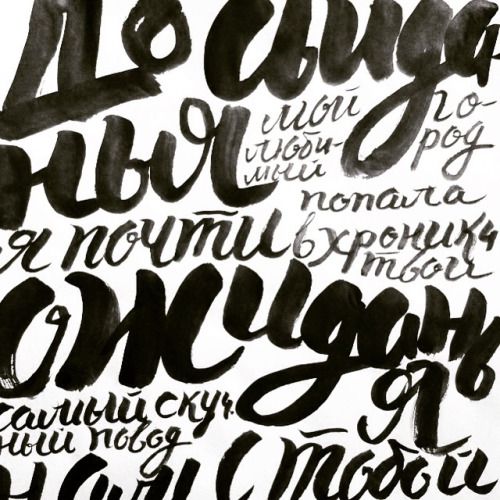 До свида
нья
мой
люби-
мый
го-
род
я почти
попала
в хроники
твои
ожидань
я
самый скуч
ный повод
нам с тобой